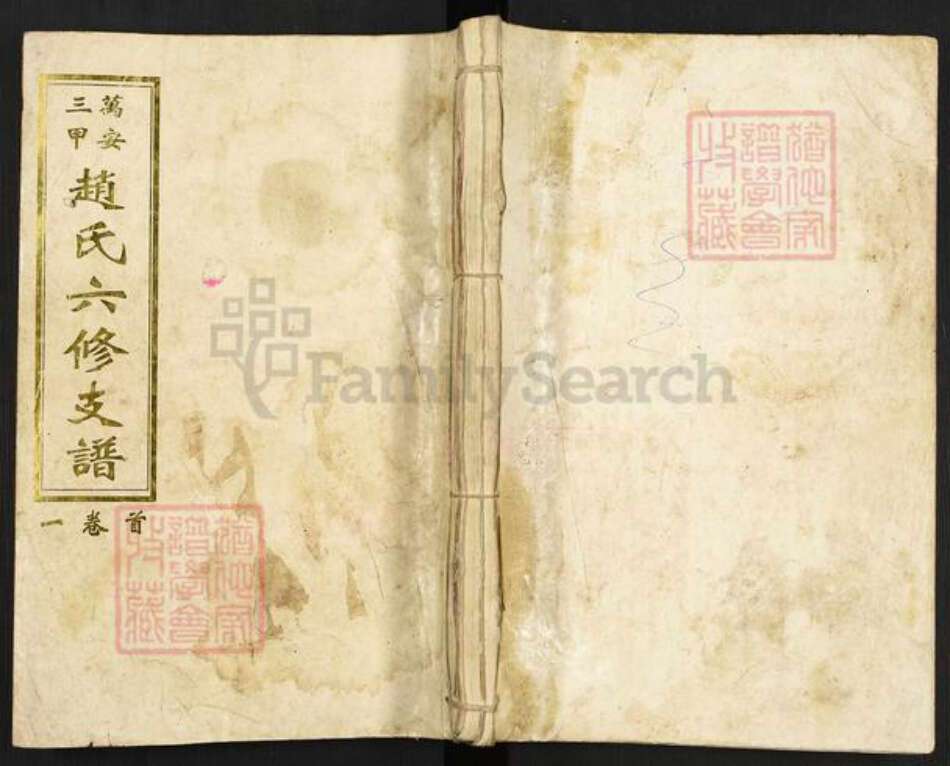 萬安
三甲
趙氏六修支譜
首卷一
猶他家
譜學會
收藏
FamilySearch
猶他家
譜學會
收藏